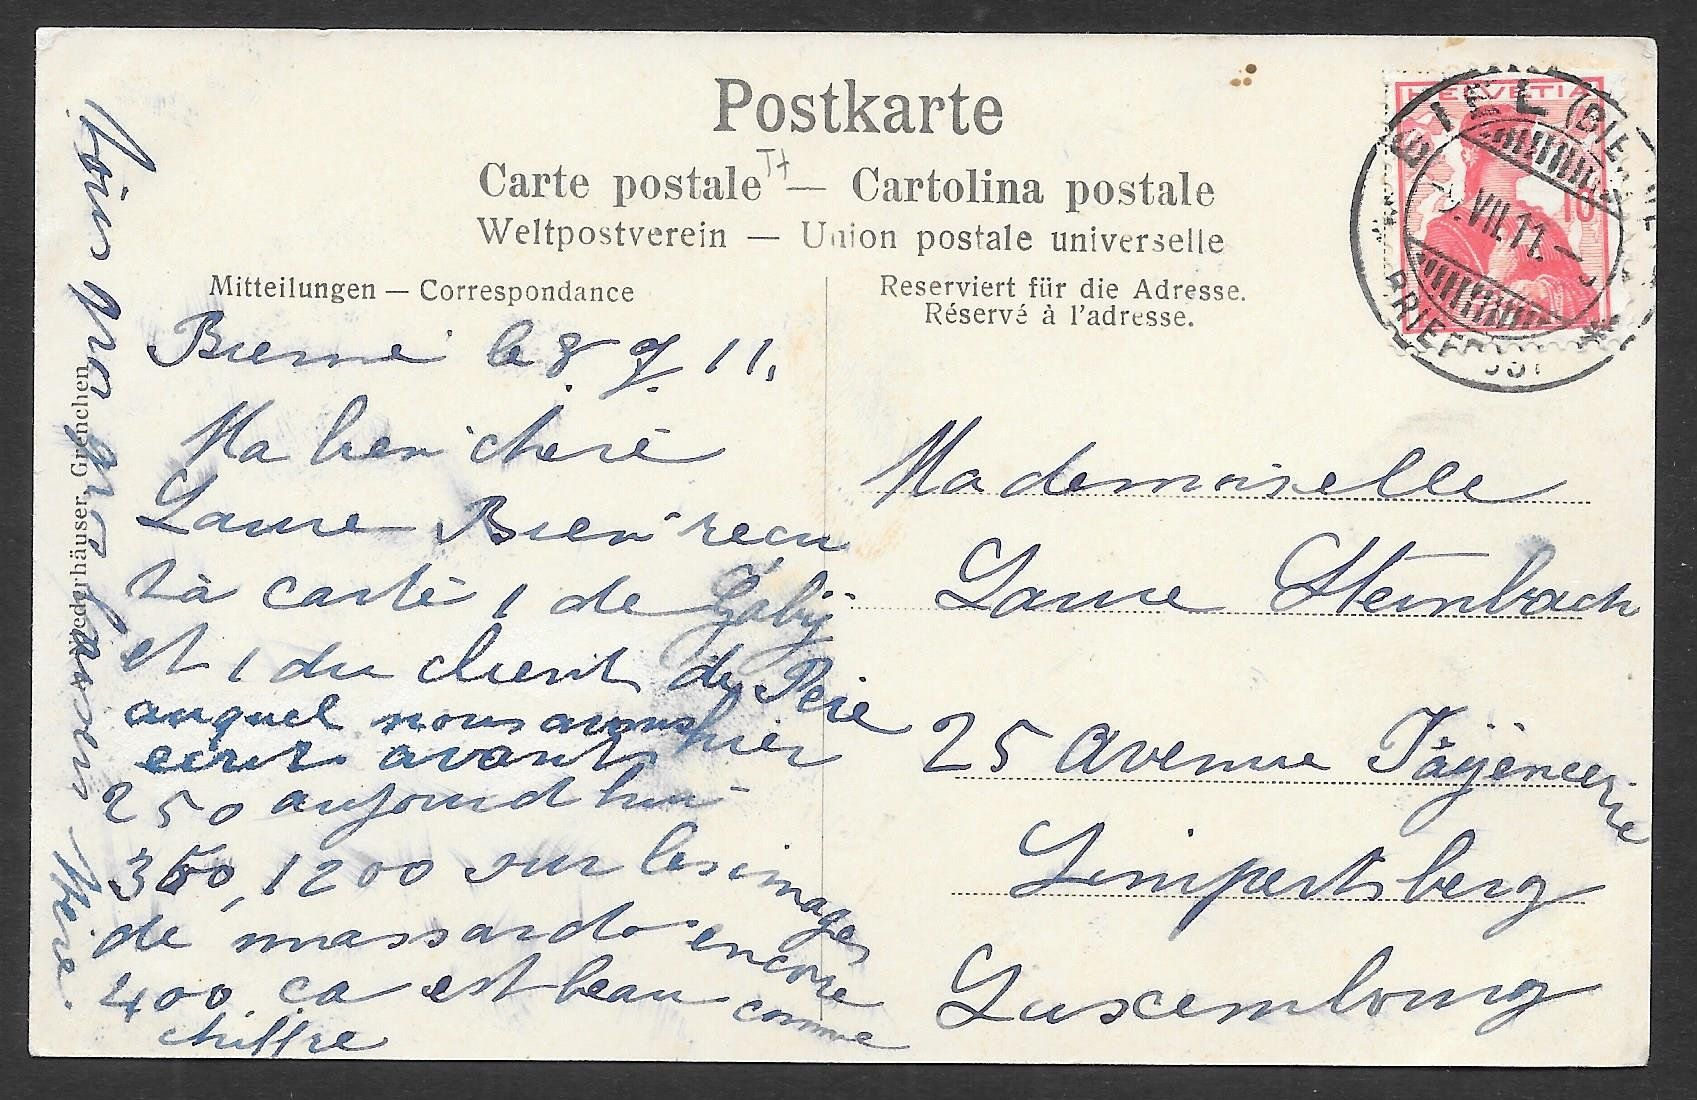 Postkarte
Carte postale — Cartolina postale
Weltpostverein — Union postale universelle
Mitteilungen — Correspondance
Reserviert für die Adresse.
Réservé à l'adresse.
HELVETIA
10
BIEL (BIENNE)
VII.11
BRIEFPOST
Bienne le 8 7 11.
Ma bien cheré
Laure Bien recu
ta carte 1 de Gaby
et 1 du client de Père
auquel nous avons
ecrit avant hier
250 aujourd hui
350, 1200 sur les images
de massardo encore
400 ça est beau comme
chiffre
Mademoiselle
Laure Steinbach
25 Avenue Faÿencerie
Limpertsberg
Luxembourg
Niederhäuser, Grenchen